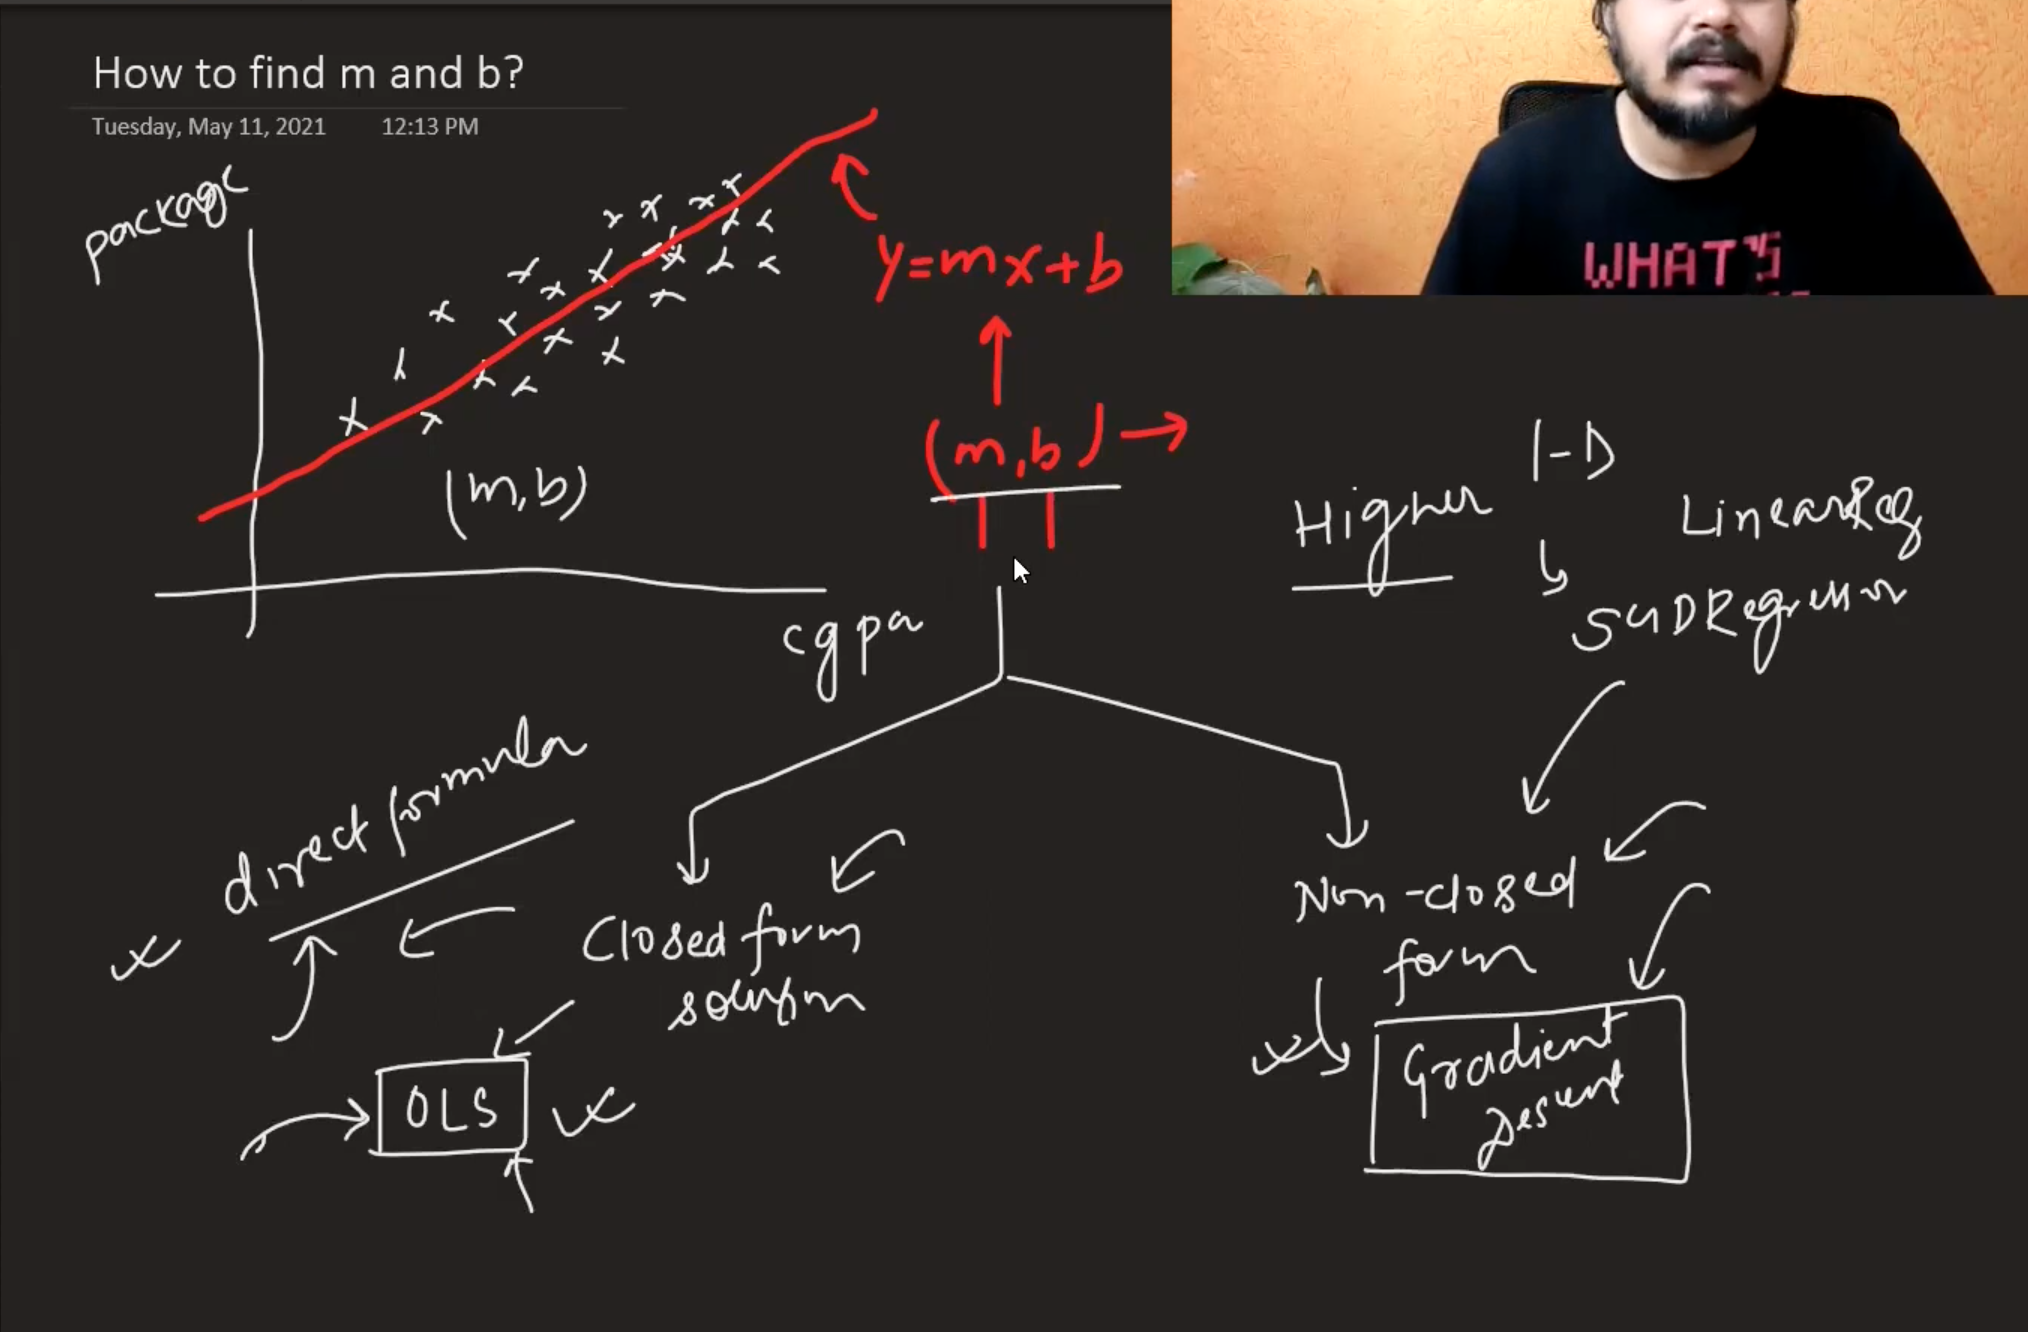 How to find m and b?
Tuesday, May 11, 2021 12:13 PM
package
WHAT'S
y=mx+b
(m,b)
(m,b)
cgpa
1-D
Higher
LinearReg
SGDRegressor
direct formula
Closed form
solution
OLS
Non-closed
form
Gradient
Descent